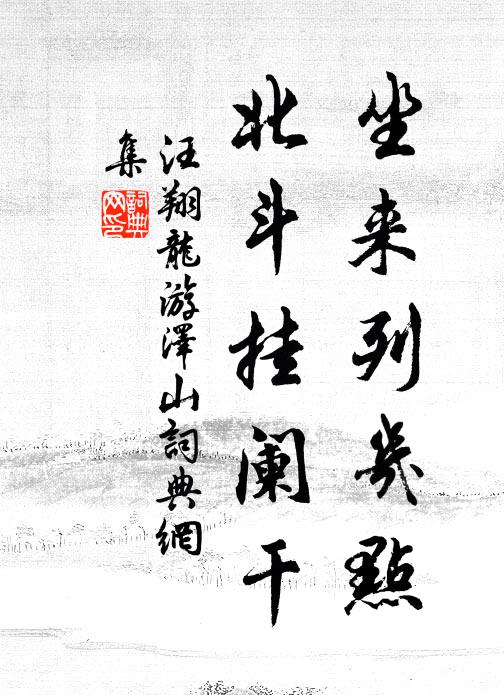 坐来列幾點
北斗挂阑干
汪翔龍游澤山詞典網
集
詞典網印